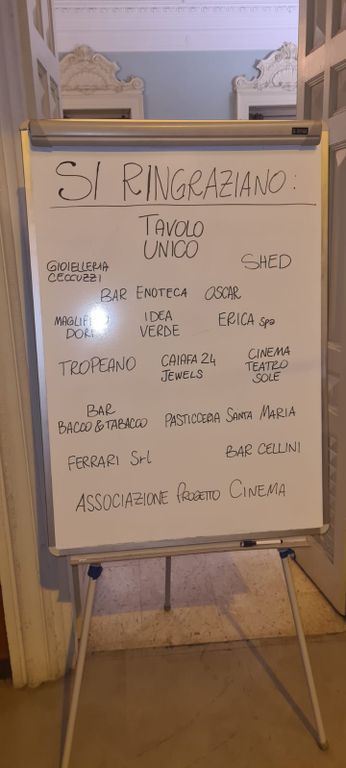 SI RINGRAZIANO:
TAVOLO
UNICO
GIOIELLERIA
CECCUZZI
SHED
BAR ENOTECA OSCAR
IDEA
VERDE
ERICA SPA
TROPEANO
CAIAFA 24
JEWELS
CINEMA
TEATRO
SOLE
BAR
BACCO & TABACCO
PASTICCERIA SANTA MARIA
FERRARI Srl
BAR CELLINI
ASSOCIAZIONE PROGETTO CINEMA